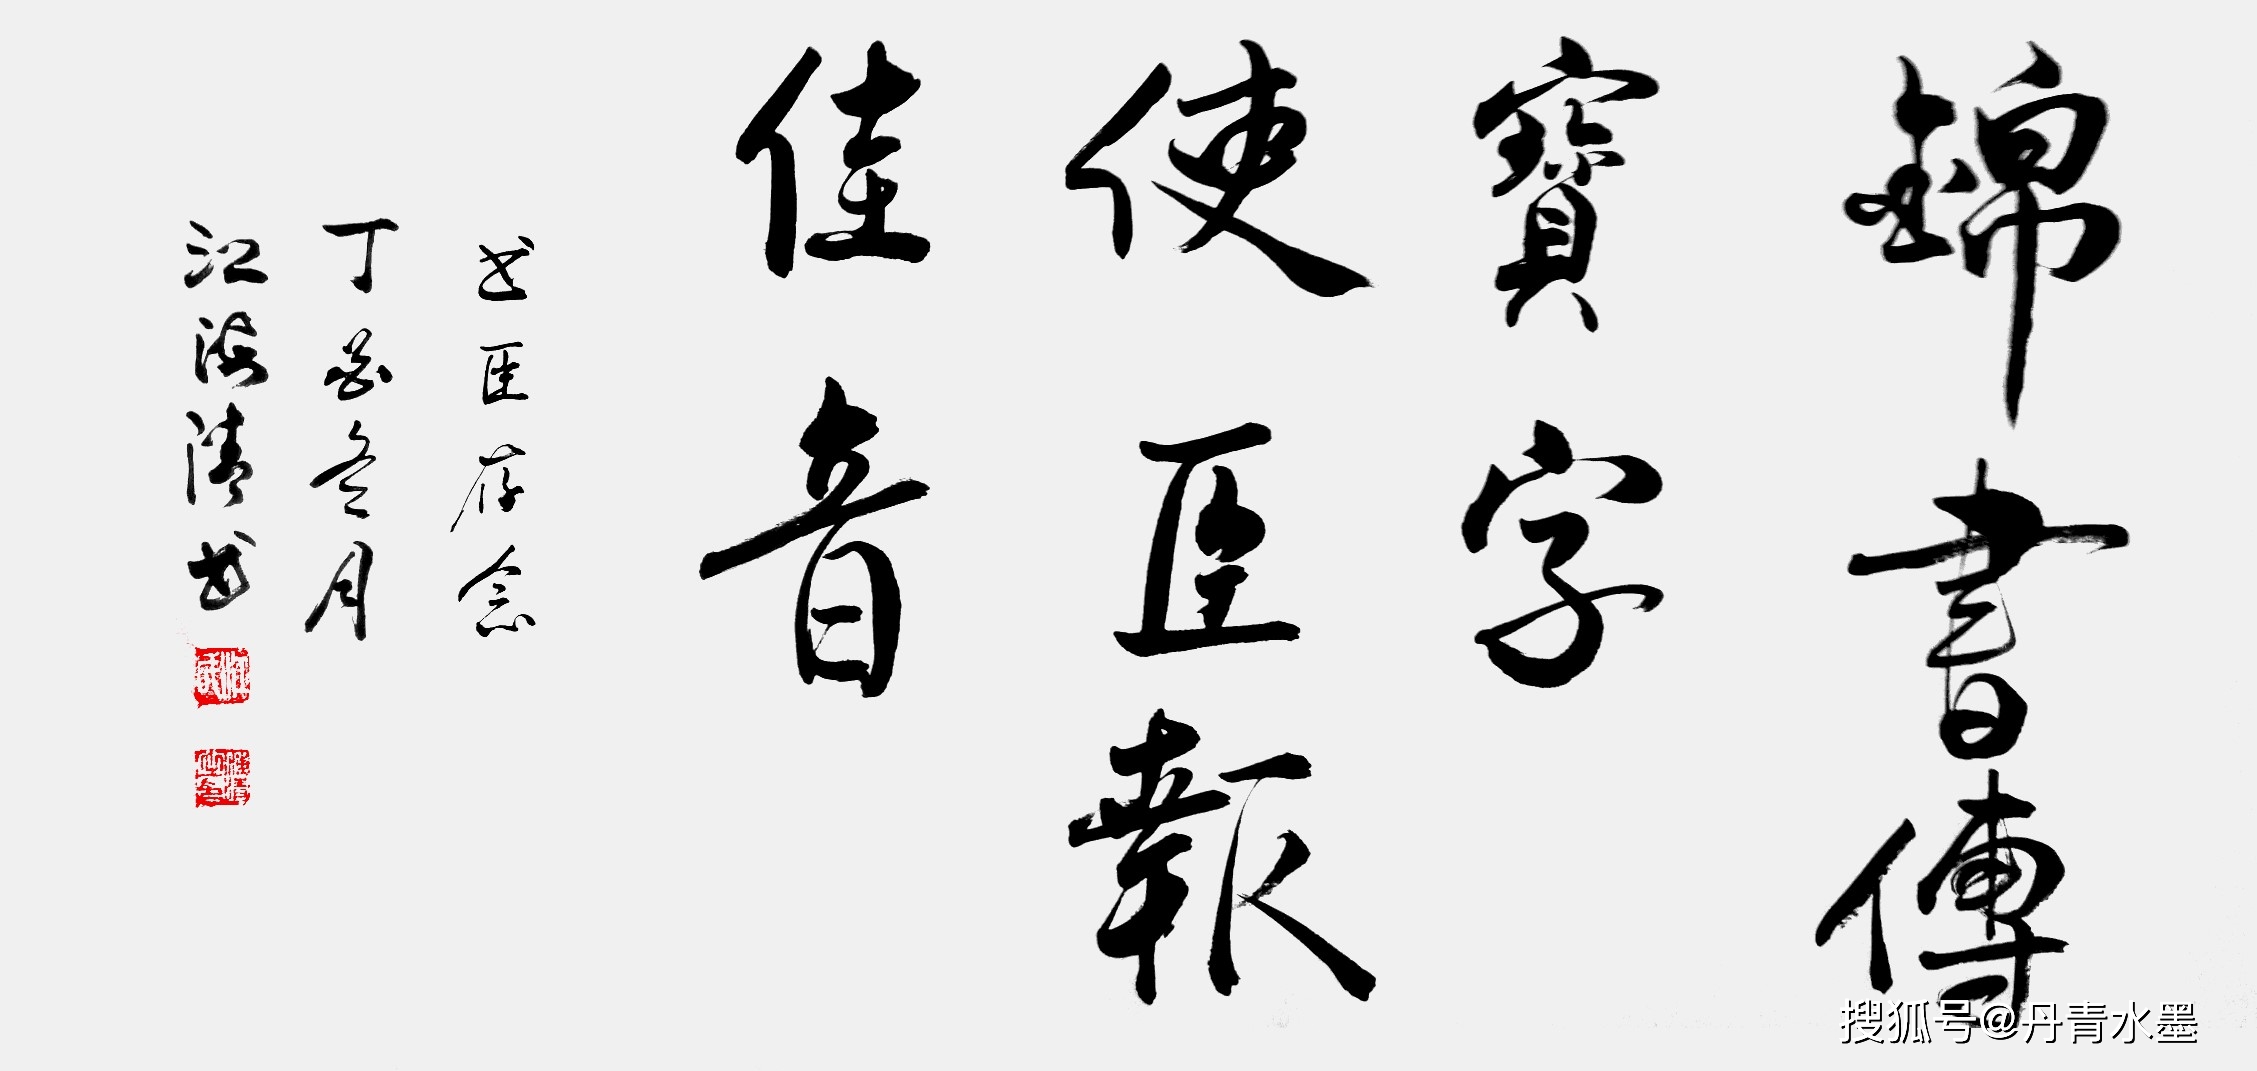 錦書傳
寶字
使匡報
佳音
书匡存念
丁酉冬月
江海清书
搜狐号@丹青水墨